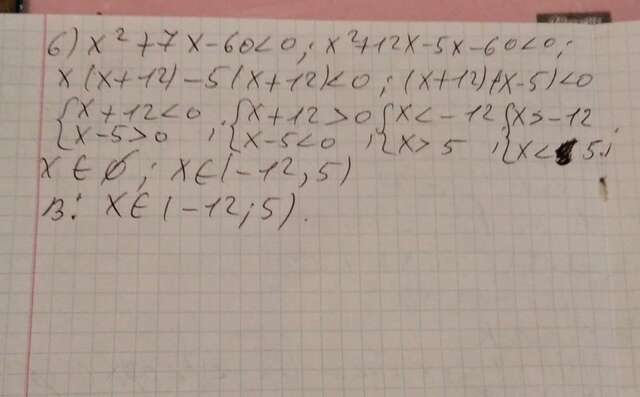 б) x² + 7x - 60 < 0; x² + 12x - 5x - 60 < 0;
x(x+12) - 5(x+12) < 0; (x+12)(x-5) < 0
{x + 12 < 0 {x + 12 > 0 {x < -12 {x > -12
{x - 5 > 0 ; {x - 5 < 0 ; {x > 5 ; {x < 5.;
x ∈ ∅; x ∈ (-12, 5)
В: x ∈ (-12; 5).